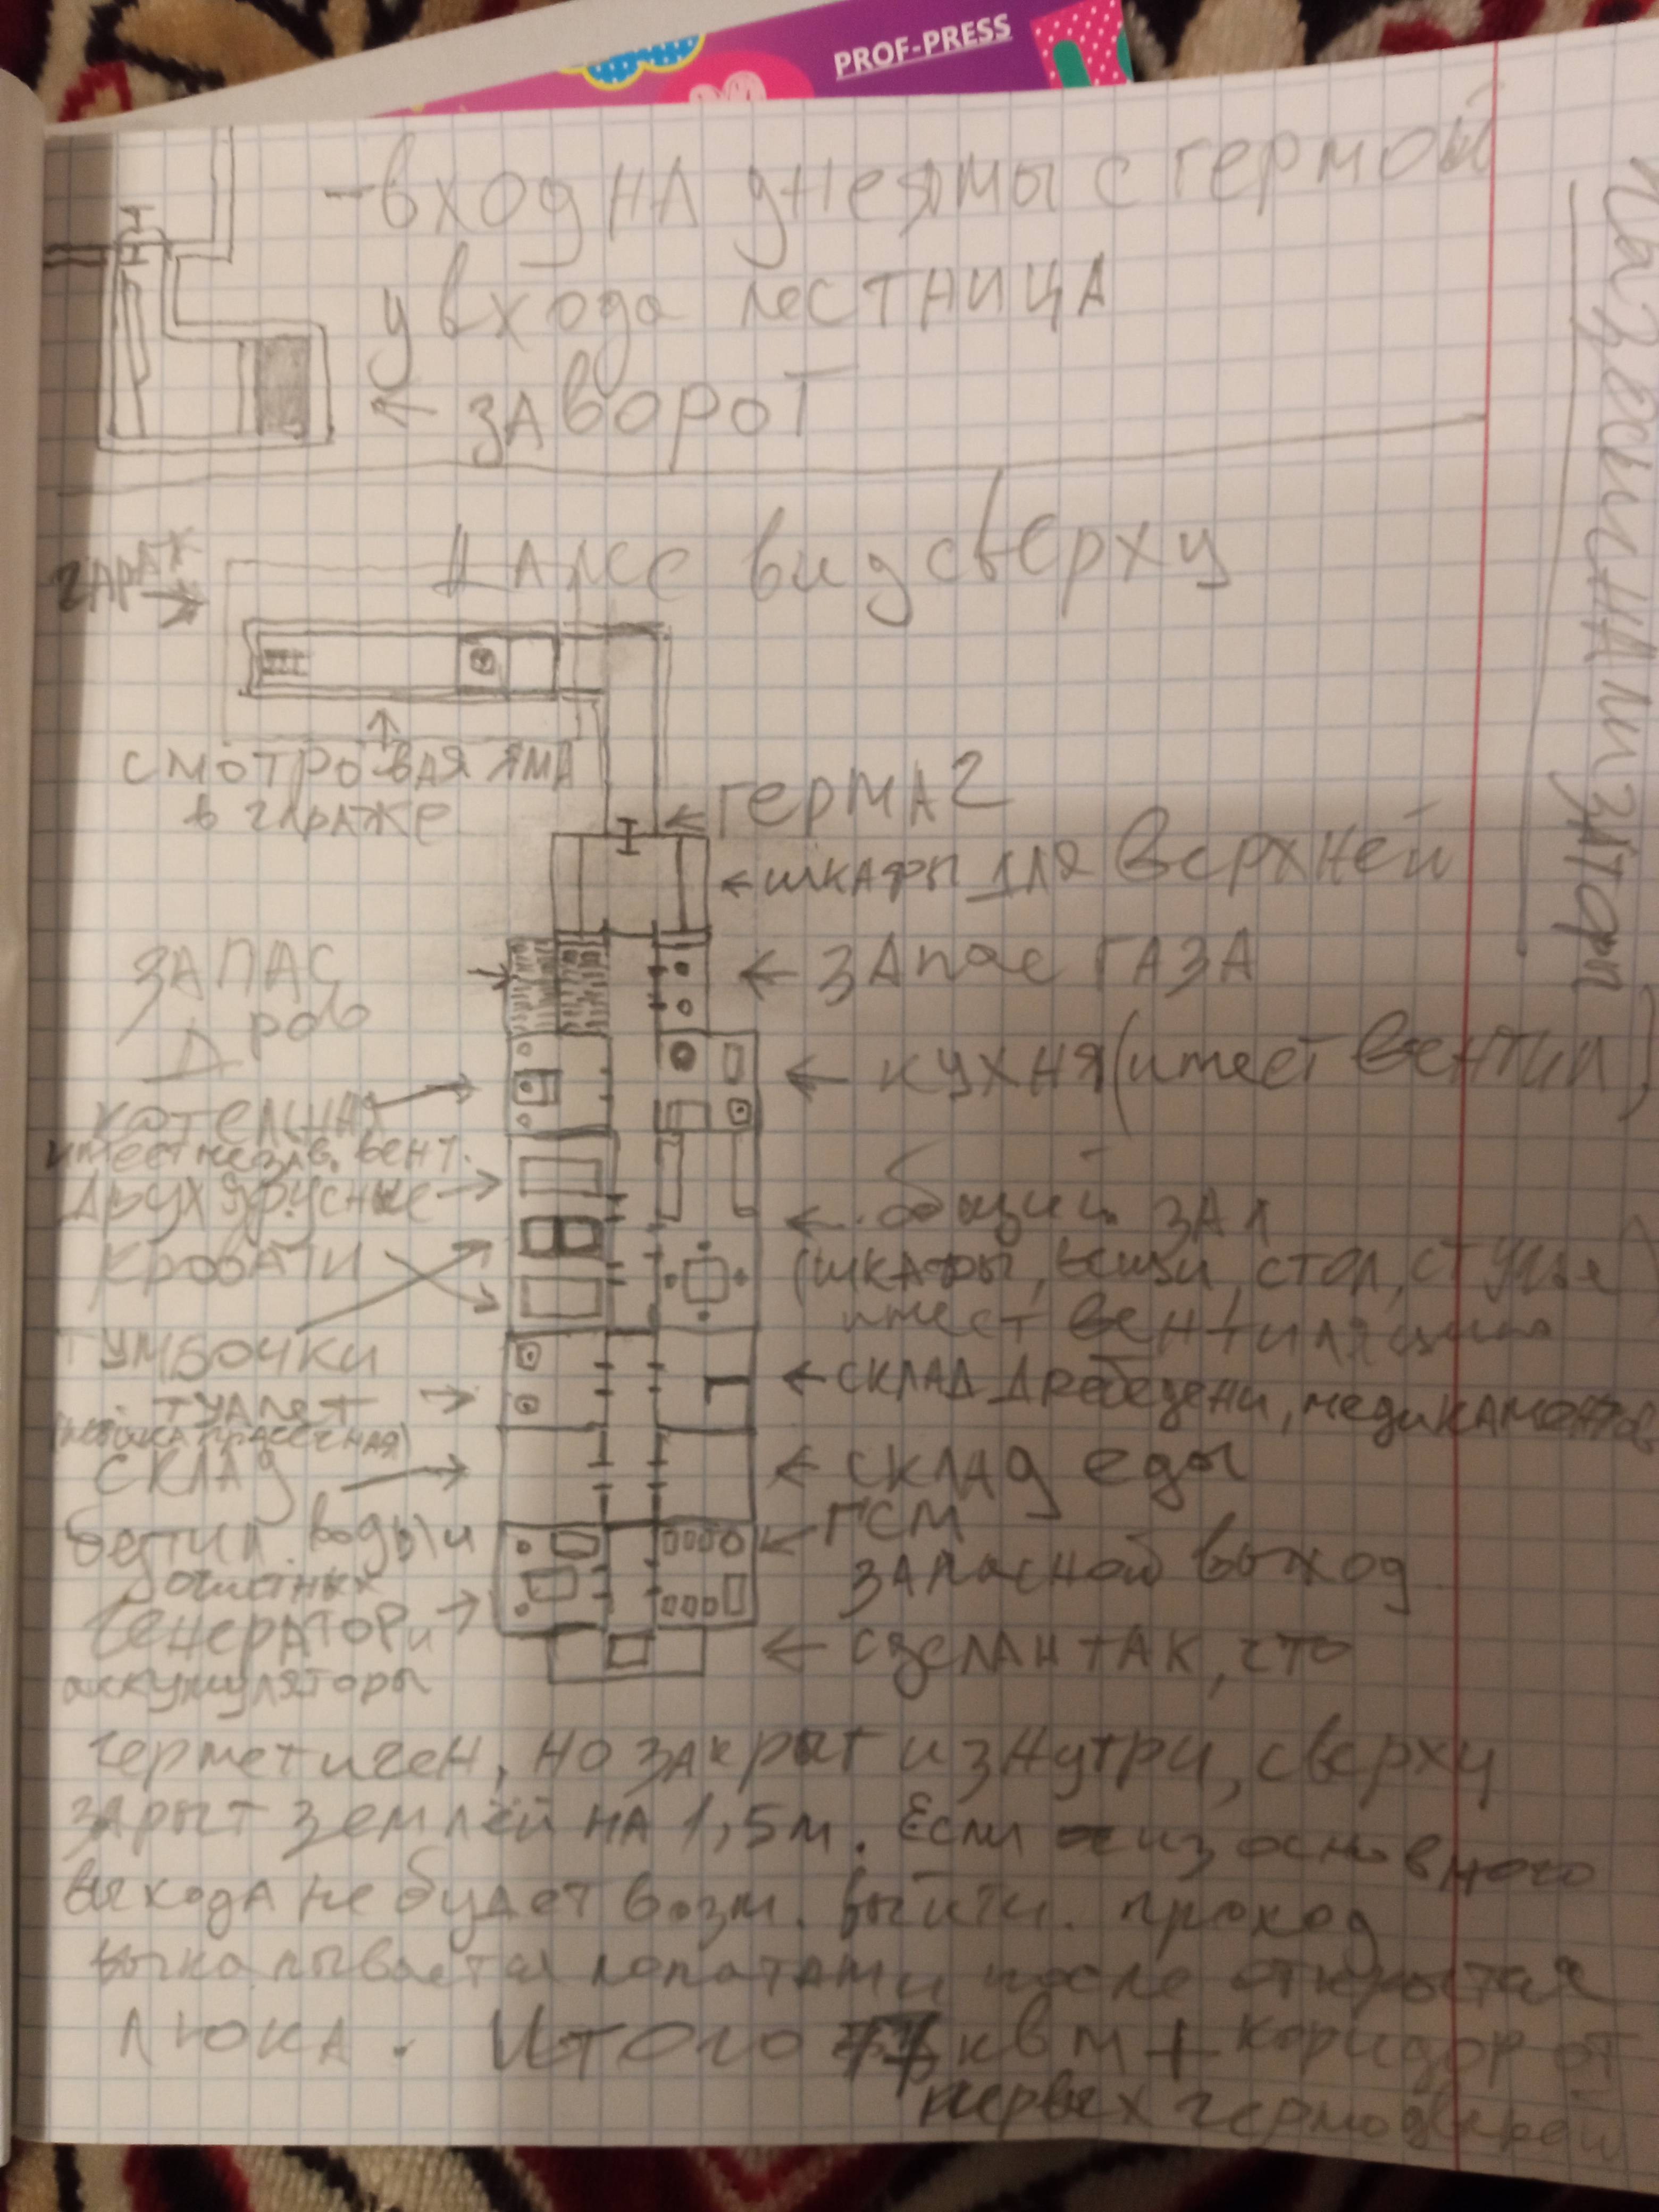 PROF-PRESS
-вход на дне ямы с гермой
у входа лестница
← заворот
гараж
Далее вид сверху
смотровая яма
в гараже
← герма 2
← шкафы для верхней
запас
дров
← запас газа
котельная
имеет незав. вент.
← кухня (имеет вентил)
двухъярусные
кровати
← общий зал
(шкафы, вещи, стол, стулья
имеет вентиляцию
тумбочки
туалет
← склад дребедени, медикаментов
склад
← склад еды
бутил. воды и
очистных
← ГСМ
запасной выход
генератор и
аккумуляторы
← сделан так, что
герметичен, но закрыт изнутри, сверху
зарыт землёй на 1,5м. Если из основного
выхода не будет возм. выйти. проход
выкапывается лопатами после открытия
люка. Итого квм + коридор от
первых гермодверей